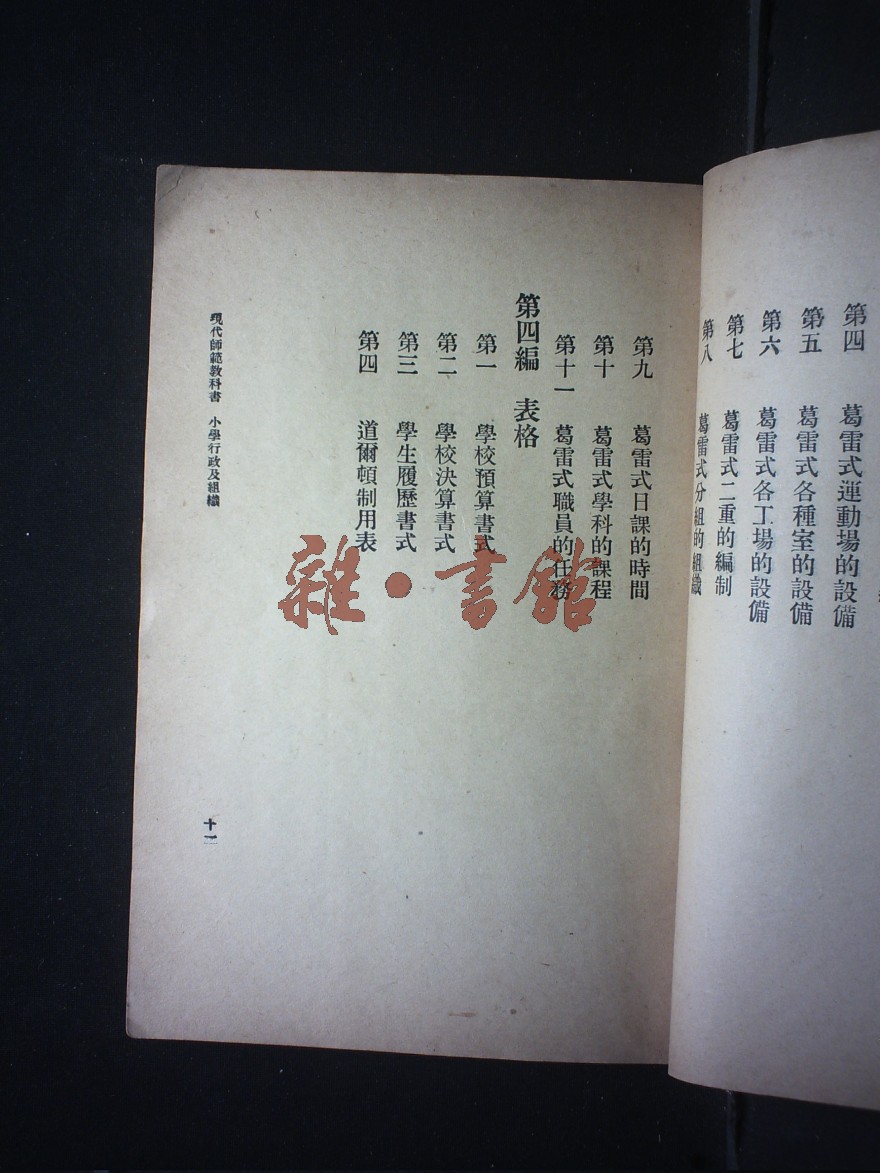 第四 葛雷式運動場的設備
第五 葛雷式各種室的設備
第六 葛雷式各工場的設備
第七 葛雷式二重的編制
第八 葛雷式分組的組織
第九 葛雷式日課的時間
第十 葛雷式學科的課程
第十一 葛雷式職員的任務
第四編 表格
第一 學校預算書式
第二 學校決算書式
第三 學生履歷書式
第四 道爾頓制用表
現代師範教科書 小學行政及組織
十一
雜·書館